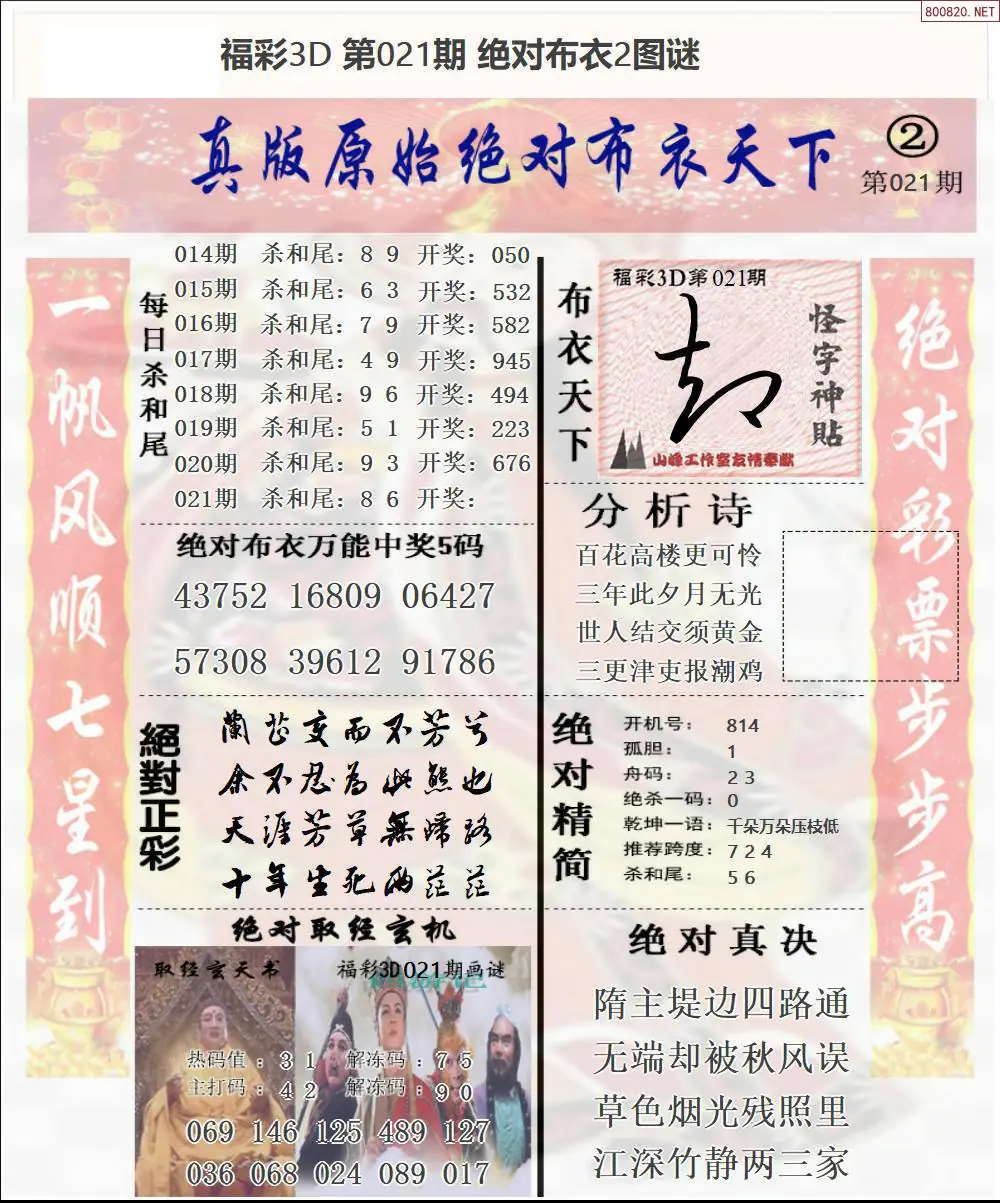 800820.NET
福彩3D 第021期 绝对布衣2图谜
真版原始绝对布衣天下
②
第021期
一帆风顺七星到
每日杀和尾
014期 杀和尾：8 9 开奖：050
015期 杀和尾：6 3 开奖：532
016期 杀和尾：7 9 开奖：582
017期 杀和尾：4 9 开奖：945
018期 杀和尾：9 6 开奖：494
019期 杀和尾：5 1 开奖：223
020期 杀和尾：9 3 开奖：676
021期 杀和尾：8 6 开奖：
绝对布衣万能中奖5码
43752 16809 06427
57308 39612 91786
絕對正彩
蘭芷变而不芳兮
余不忍为此態也
天涯芳草無歸路
十年生死両茫茫
绝对取经玄机
取经玄天书
福彩3D021期画谜
热码值：3 1 解冻码：7 5
主打码：4 2 解冻码：9 0
069 146 125 489 127
036 068 024 089 017
布衣天下
福彩3D第021期
怪字神贴
山峰工作室友情奉献
分析诗
百花高楼更可怜
三年此夕月无光
世人结交须黄金
三更津吏报潮鸡
绝对精简
开机号：814
孤胆：1
舟码：2 3
绝杀一码：0
乾坤一语：千朵万朵压枝低
推荐跨度：7 2 4
杀和尾：5 6
绝对真决
隋主堤边四路通
无端却被秋风误
草色烟光残照里
江深竹静两三家
绝对彩票步步高